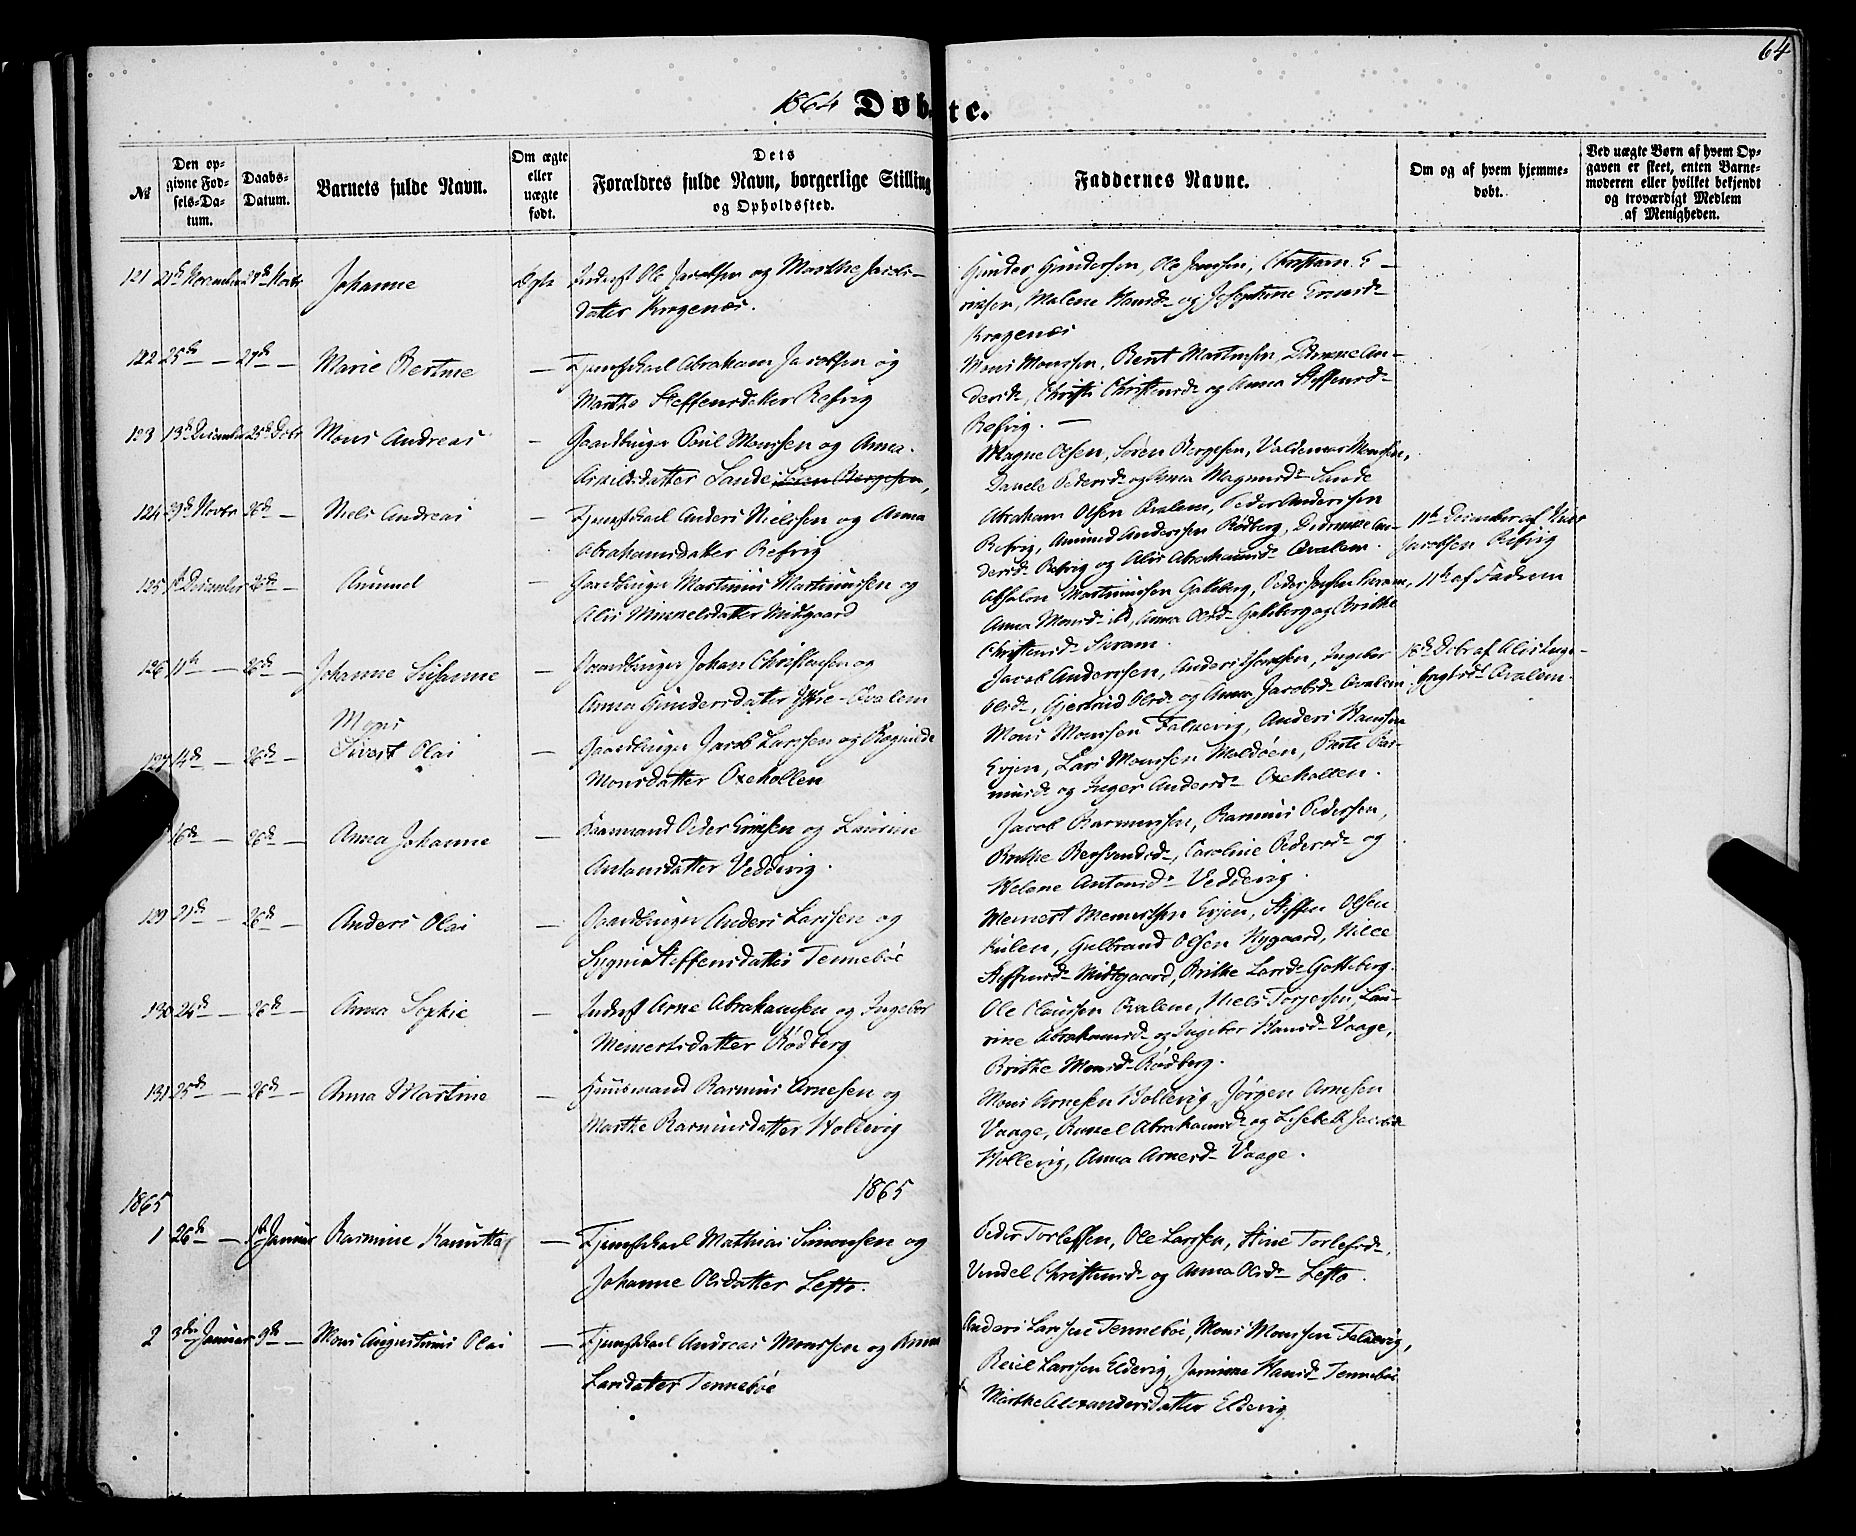 64
1864 Døbte.
№
Den opgivne Fødsels-Datum.
Daabs-Datum.
Barnets fulde Navn.
Om ægte eller uægte født.
Dets Forældres fulde Navn, borgerlige Stilling og Opholdssted.
Faddernes Navne.
Om og af hvem hjemmedøbt.
Ved uægte Børn af hvem Opgaven er skeet, enten Barnemoderen eller hvilket bekjendt og troværdigt Medlem af Menigheden.
121 21de November 27de Novbr Johanne Ægte Inderst Ole Jacobsen og Marthe Jacobs-
datter Krogenæs.
Gunder Gundersen, Ole Jensen, Christian E-
ricsen, Malene Hansd. og Josephine
Krogenæs
122 25de — 27de — Marie Bertine — Tjenestekarl Abraham Jacobsen og
Marthe Steffensdatter Refvig
Mons Monssen, Bent Martinsen, An-
dersd., Christi Christensd. og Anna Steffensd.
Refvig. —
123 13de December 25de Debr Mons Andreas — Gaardbruger Poul Monssen og Anna
datter Sande
Magne Olsen, Søren Børgesen, Valdemar Monssen,
Pedersd. og Anna Magnusd. Sande
124 29de Novbr 26de — Niels Andreas — Tjenestekarl Anders Nielssen og Anna
Abrahamsdatter Refvig
Abraham Olsen Qvalem, Peder Anderssen
Refvig, Amund Anderssen Rødberg, An-
dersd. Refvig og Alis Abrahamsd. Qvalem.
11te December af
Jacobsen Refvig
125 December 26de — — Gaardbruger Martinus Martinussen og
Alis Mikkelsdatter Midgaard
Absalon Martinussen Gotteberg, Peder Jensen Skram,
Anna Monsd. ibd, Anna Olsd. Gotteberg og Brithe
Christensd. Skram.
11te af Faderen
126 11te — 26de — Johanne Susanne — Gaardbruger Johan Christensen og
Anna Gundersdatter Ytre-Qvalem
Jacob Anderssen, Anders Jonssen, Ingebor
Olsd., Gjertrud Olsd. og Anna Jacobsd. Qvalem.
18de Debr af Alis Inge-
brigtsd. Qvalem.
127 14de — 26de — Mons Sivert Olai — Gaardbruger Jacob Larssen og Ragnilde
Monsdatter Oxehollen
Mons Monssen Falkevig, Anders Hanssen
Evjen, Lars Monssen Moldøen, Berte Ras-
musd. og Inger Andersd. Oxehollen.
16de — 26de — Anna Johanne — Peder Ericsen og Laurine
Antonsdatter Veddevig.
Jacob Rasmussen, Rasmus Pedersen,
Brithe Bertsd., Caroline Pedersd. og
Helene Antonsd. Veddevig.
129 21de — 26de — Anders Olai — Gaardbruger Anders Larssen og
Steffensdatter Tennebøe
Meinert Meinertsen Evjen, Steffen Olsen
Kulen, Gulbrand Olsen Nygaard,
Steffensd. Midtgaard, Brithe Larsd. Gotteberg.
130 24de — 26de — Anna Sophie — Inderst Arne Abrahamsen og Ingebor
Meinertsdatter Rødberg
Ole Claussen Qvalem, Niels Torjesen, Lau-
rine Abrahamsd. og Ingebor Hansd. Vaage,
Brithe Monsd. Rødberg.
131 25de — 26de — Anna Martine — Huusmand Rasmus Arnesen og
Marthe Rasmusdatter Hollevig
Mons Arnesen Hollevig, Jørgen Arnesen
Vaage, Abrahamsd. og Lisebeth Jacobsd.
Hollevig, Anna Arnesd. Vaage.
1865 1865
1 26de — 1ste Januar Rasmine — Tjenestekarl Mathias Simonsen og
Johanne Olsdatter Lefto.
Peder Torlefsen, Ole Larssen, Stine Torlefsd.,
Vendel Christensd. og Anna Olsd. Lefto.
2 3die Januar 9de — Mons Augustinus Olai — Tjenestekarl Andreas Monssen og Anna
Larsdatter Tennebøe
Anders Larssen Tennebøe, Mons Monssen Falkevig,
Larssen Eldevig, Hansd. Tennebøe
Marthe Alexandersdatter Eldevig